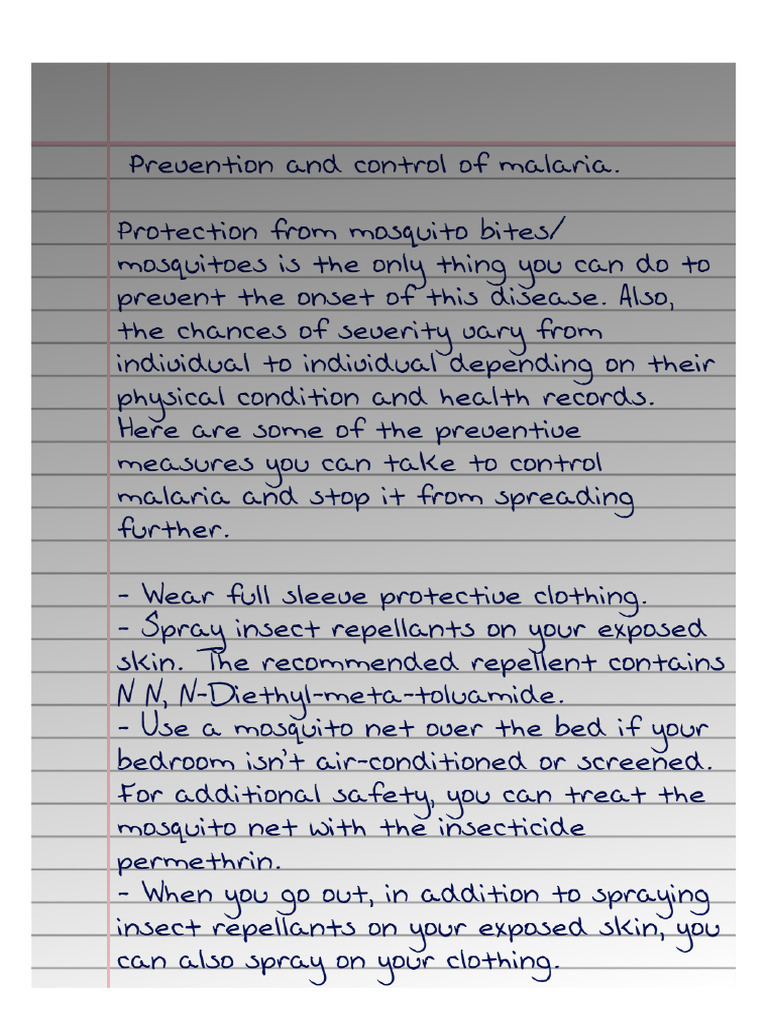 Prevention and control of malaria.
Protection from mosquito bites/
mosquitoes is the only thing you can do to
prevent the onset of this disease. Also,
the chances of severity vary from
individual to individual depending on their
physical condition and health records.
Here are some of the preventive
measures you can take to control
malaria and stop it from spreading
further.
- Wear full sleeve protective clothing.
- Spray insect repellants on your exposed
skin. The recommended repellent contains
N N, N-Diethyl-meta-toluamide.
- Use a mosquito net over the bed if your
bedroom isn't air-conditioned or screened.
For additional safety, you can treat the
mosquito net with the insecticide
permethrin.
- When you go out, in addition to spraying
insect repellants on your exposed skin, you
can also spray on your clothing.